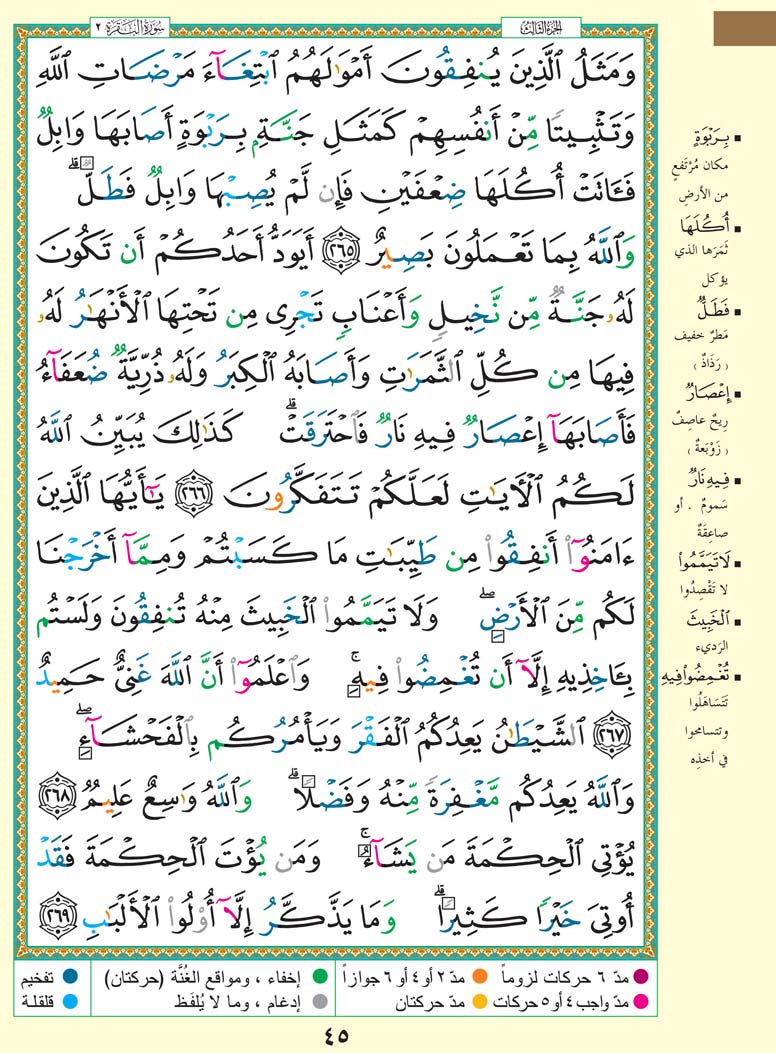 الجزء الثالث
سورة البقرة ٢
وَمَثَلُ ٱلَّذِينَ يُنفِقُونَ أَمْوَٰلَهُمُ ٱبْتِغَآءَ مَرْضَاتِ ٱللَّهِ
وَتَثْبِيتًا مِّنْ أَنفُسِهِمْ كَمَثَلِ جَنَّةٍۭ بِرَبْوَةٍ أَصَابَهَا وَابِلٌ
فَـَٔاتَتْ أُكُلَهَا ضِعْفَيْنِ فَإِن لَّمْ يُصِبْهَا وَابِلٌ فَطَلٌّ ۗ
وَٱللَّهُ بِمَا تَعْمَلُونَ بَصِيرٌ ٢٦٥ أَيَوَدُّ أَحَدُكُمْ أَن تَكُونَ
لَهُۥ جَنَّةٌ مِّن نَّخِيلٍ وَأَعْنَابٍ تَجْرِى مِن تَحْتِهَا ٱلْأَنْهَٰرُ لَهُۥ
فِيهَا مِن كُلِّ ٱلثَّمَرَٰتِ وَأَصَابَهُ ٱلْكِبَرُ وَلَهُۥ ذُرِّيَّةٌ ضُعَفَآءُ
فَأَصَابَهَآ إِعْصَارٌ فِيهِ نَارٌ فَٱحْتَرَقَتْ ۗ كَذَٰلِكَ يُبَيِّنُ ٱللَّهُ
لَكُمُ ٱلْـَٔايَٰتِ لَعَلَّكُمْ تَتَفَكَّرُونَ ٢٦٦ يَٰٓأَيُّهَا ٱلَّذِينَ
ءَامَنُوٓا۟ أَنفِقُوا۟ مِن طَيِّبَٰتِ مَا كَسَبْتُمْ وَمِمَّآ أَخْرَجْنَا
لَكُم مِّنَ ٱلْأَرْضِ ۖ وَلَا تَيَمَّمُوا۟ ٱلْخَبِيثَ مِنْهُ تُنفِقُونَ وَلَسْتُم
بِـَٔاخِذِيهِ إِلَّآ أَن تُغْمِضُوا۟ فِيهِ ۚ وَٱعْلَمُوٓا۟ أَنَّ ٱللَّهَ غَنِىٌّ حَمِيدٌ
٢٦٧ ٱلشَّيْطَٰنُ يَعِدُكُمُ ٱلْفَقْرَ وَيَأْمُرُكُم بِٱلْفَحْشَآءِ ۖ
وَٱللَّهُ يَعِدُكُم مَّغْفِرَةً مِّنْهُ وَفَضْلًا ۗ وَٱللَّهُ وَٰسِعٌ عَلِيمٌ ٢٦٨
يُؤْتِى ٱلْحِكْمَةَ مَن يَشَآءُ ۚ وَمَن يُؤْتَ ٱلْحِكْمَةَ فَقَدْ
أُوتِىَ خَيْرًا كَثِيرًا ۗ وَمَا يَذَّكَّرُ إِلَّآ أُو۟لُوا۟ ٱلْأَلْبَٰبِ ٢٦٩
▪ بِرَبْوَةٍ
مكان مُرْتَفعٍ
من الأرضِ
▪ أُكُلَهَا
ثَمَرَها الذي
يؤكل
▪ فَطَلٌّ
مَطرٌ خفيف
( رَذَاذٌ )
▪ إِعْصَارٌ
رِيحٌ عاصِفٌ
( زَوْبَعةٌ )
▪ فِيهِ نَارٌ
سَمومٌ . أو
صاعِقَةٌ
▪ لَا تَيَمَّمُوا۟
لا تَقْصِدُوا
▪ ٱلْخَبِيثَ
الرّديء
▪ تُغْمِضُوا۟ فِيهِ
تَتَسَاهَلُوا
وتتسامحوا
في أخذِه
مدّ ٦ حركات لزوماً
مدّ ٢ أو ٤ أو ٦ جوازاً
إخفاء ، ومواقع الغُنَّة (حركتان)
تفخيم
مدّ واجب ٤ أو ٥ حركات
مدّ حركتان
إدغام ، وما لا يُلفَظ
قلقلة
٤٥